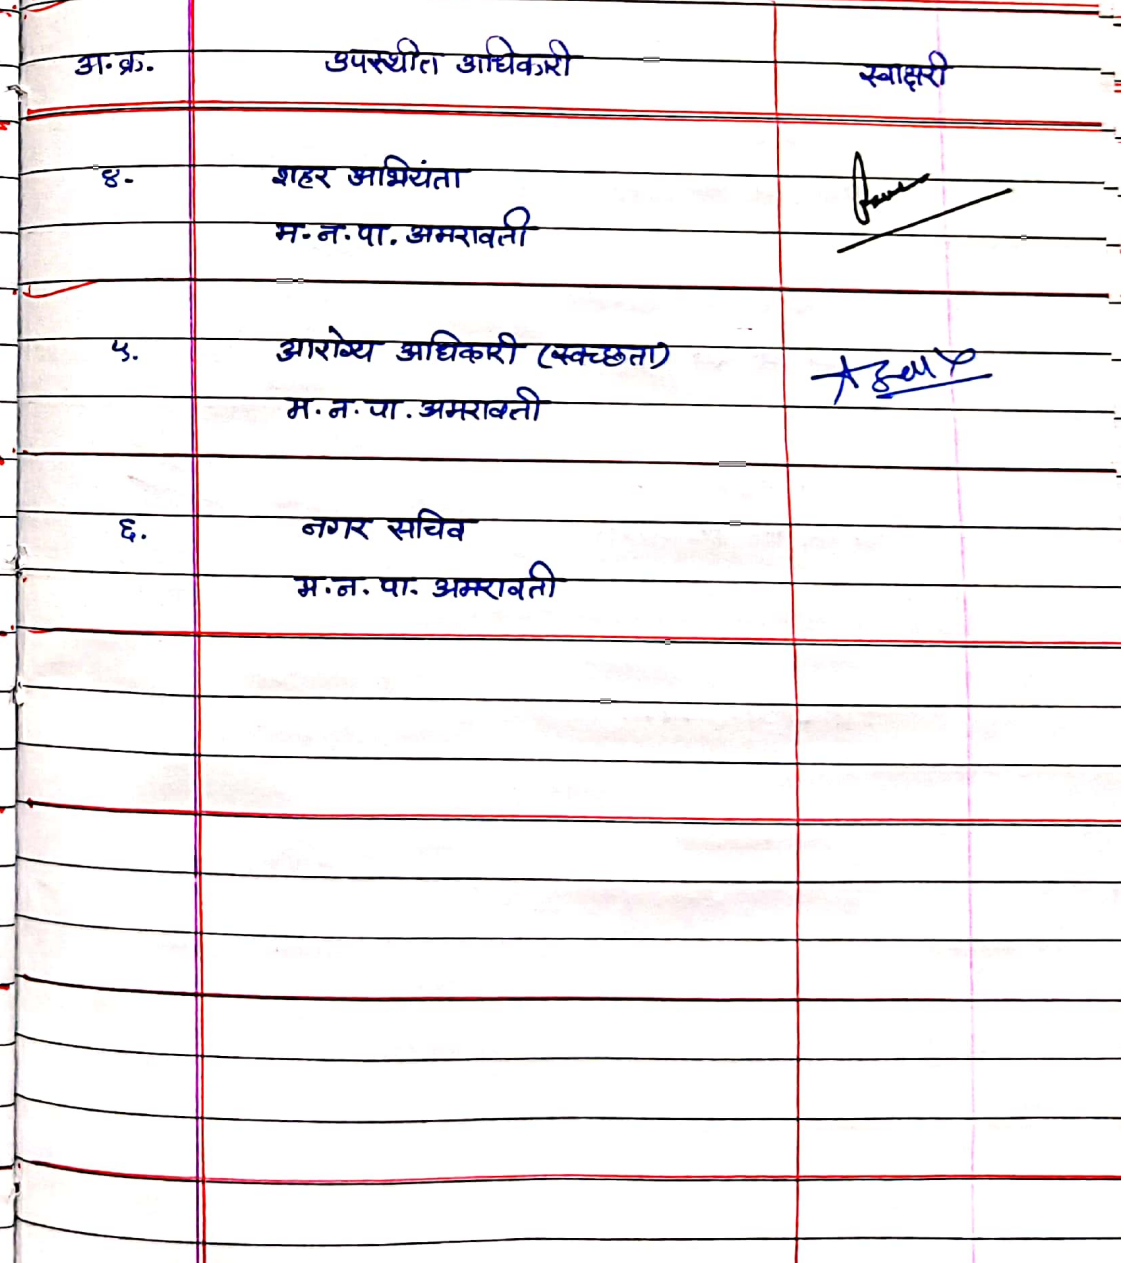 अ.क्र. उपस्थीत अधिकारी स्वाक्षरी
४. शहर अभियंता
म.न.पा. अमरावती
५. आरोग्य अधिकारी (स्वच्छता)
म.न.पा. अमरावती
६. नगर सचिव
म.न.पा. अमरावती